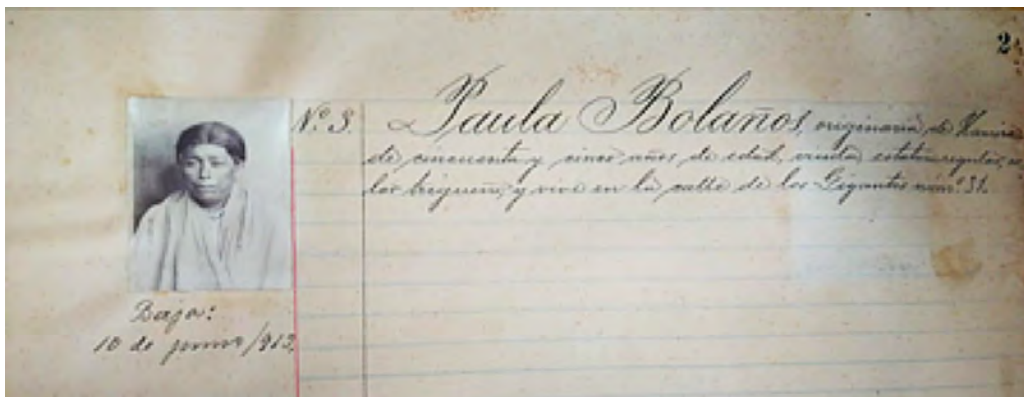 2
Nº 3. Paula Bolaños, originaria de
de cincuenta y cinco años de edad, viuda, estatura regular, co
lor trigueño, y vive en la calle de los Gigantes núm.º 31.
Baja:
10 de junio/912